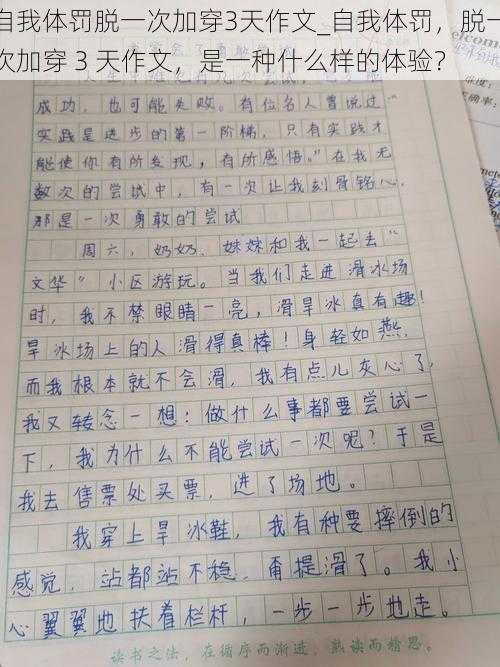 自我体罚脱一次加穿3天作文_自我体罚，脱一
次加穿 3 天作文，是一种什么样的体验？
成功，也可能失败。有位名人曾说过"
实践是进步的第一阶梯，只有实践才
能使你有所发现，有所感悟。"在我无
数次的尝试中，有一次让我刻骨铭心，
那是一次勇敢的尝试
周六，奶奶、妹妹和我一起去"
文华"小区游玩。当我们走进滑冰场
时，我不禁眼睛一亮，滑旱冰真有趣！
旱冰场上的人滑得真棒！身轻如燕，
而我根本就不会滑，我有点儿灰心了，
我又转念一想：做什么事都要尝试一
下，我为什么不能尝试一次呢？于是
我去售票处买票，进了场地。
我穿上旱冰鞋，我有种要摔倒的
感觉，站都站不稳，甭提滑了。我小
心翼翼地扶着栏杆，一步一步地走。
读书之法，在循序而渐进，熟读而精思。